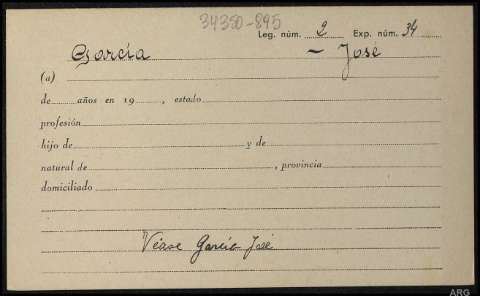 34350-895
Leg. núm. 2 Exp. núm. 34
García — José
(a)
de años en 19 , estado
profesión
hijo de y de
natural de , provincia
domiciliado
Véase García José
ARG